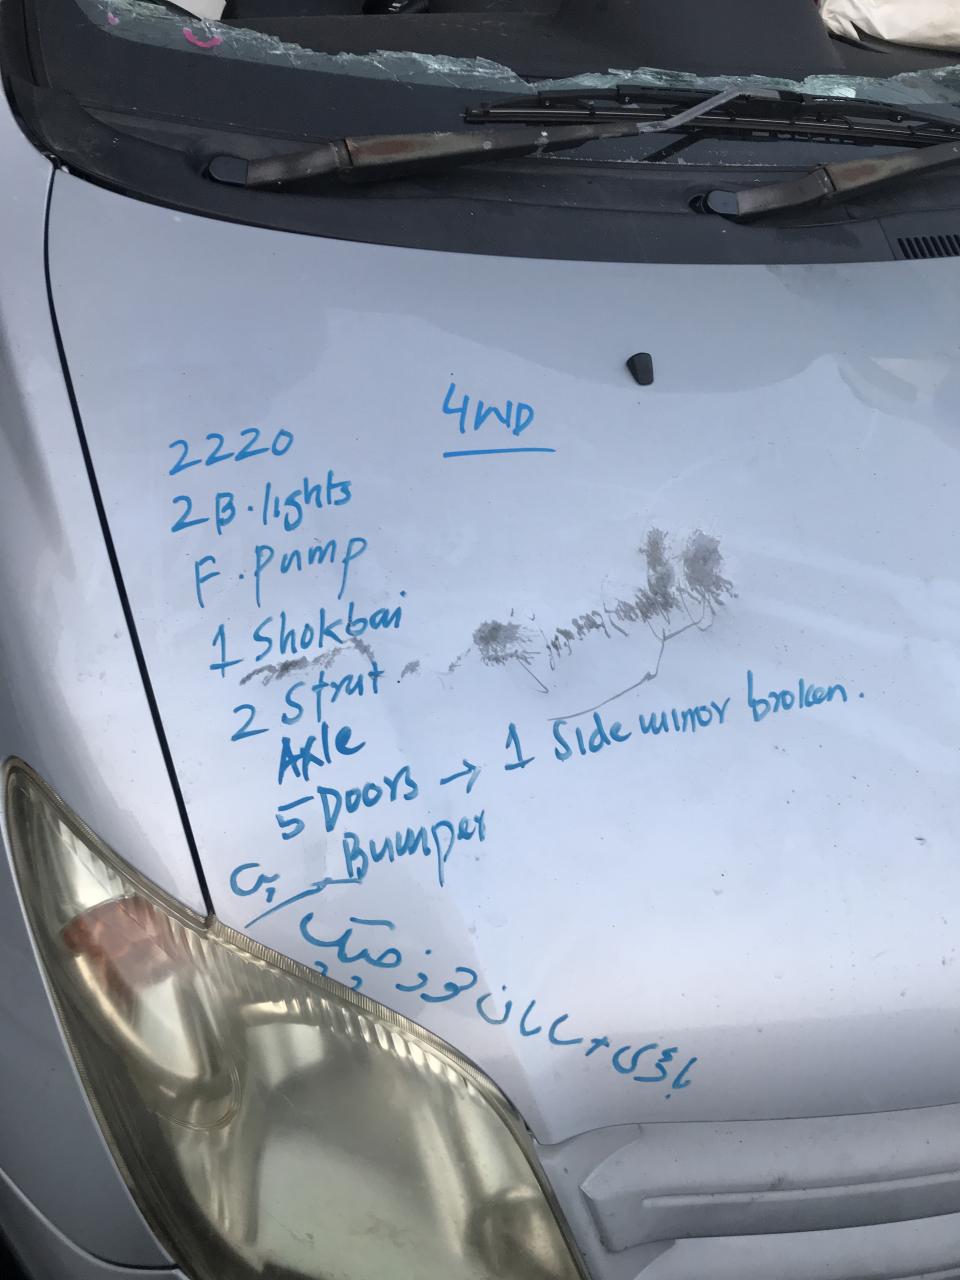 4WD
2220
2 B.lights
F.Pump
1 Shokbai
2 Strut
Axle
5 Doors → 1 Side mirror broken.
G, Bumper
باڈی + سامان